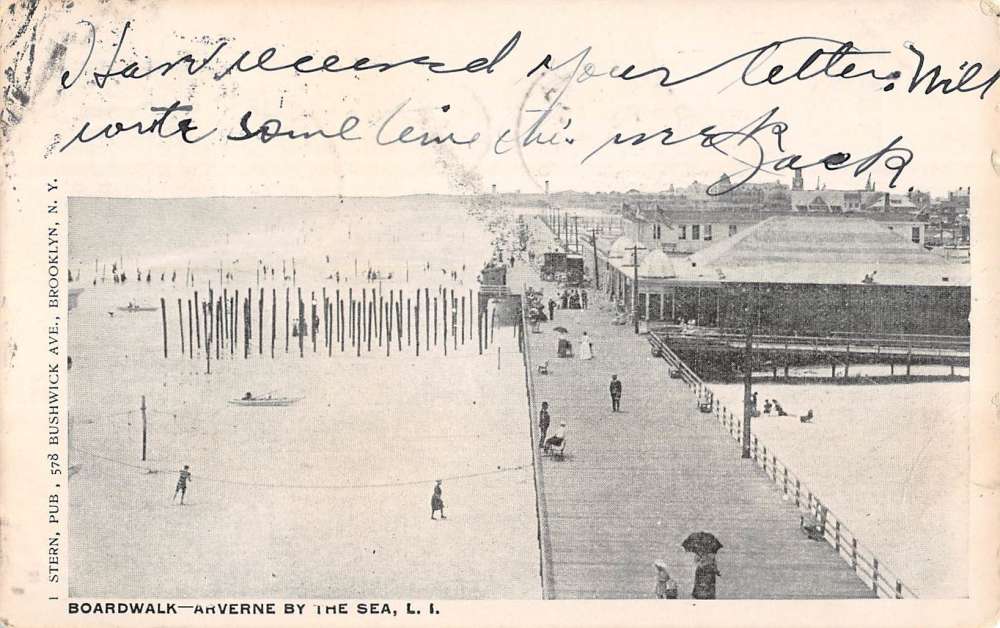 Have received your letter. Will
write some time this week
Jack
I STERN, PUB, 578 BUSHWICK AVE., BROOKLYN, N. Y.
BOARDWALK—ARVERNE BY THE SEA, L. I.